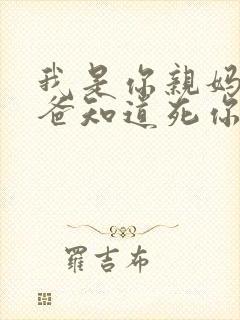 我是你親媽
爸知道死你
羅吉布